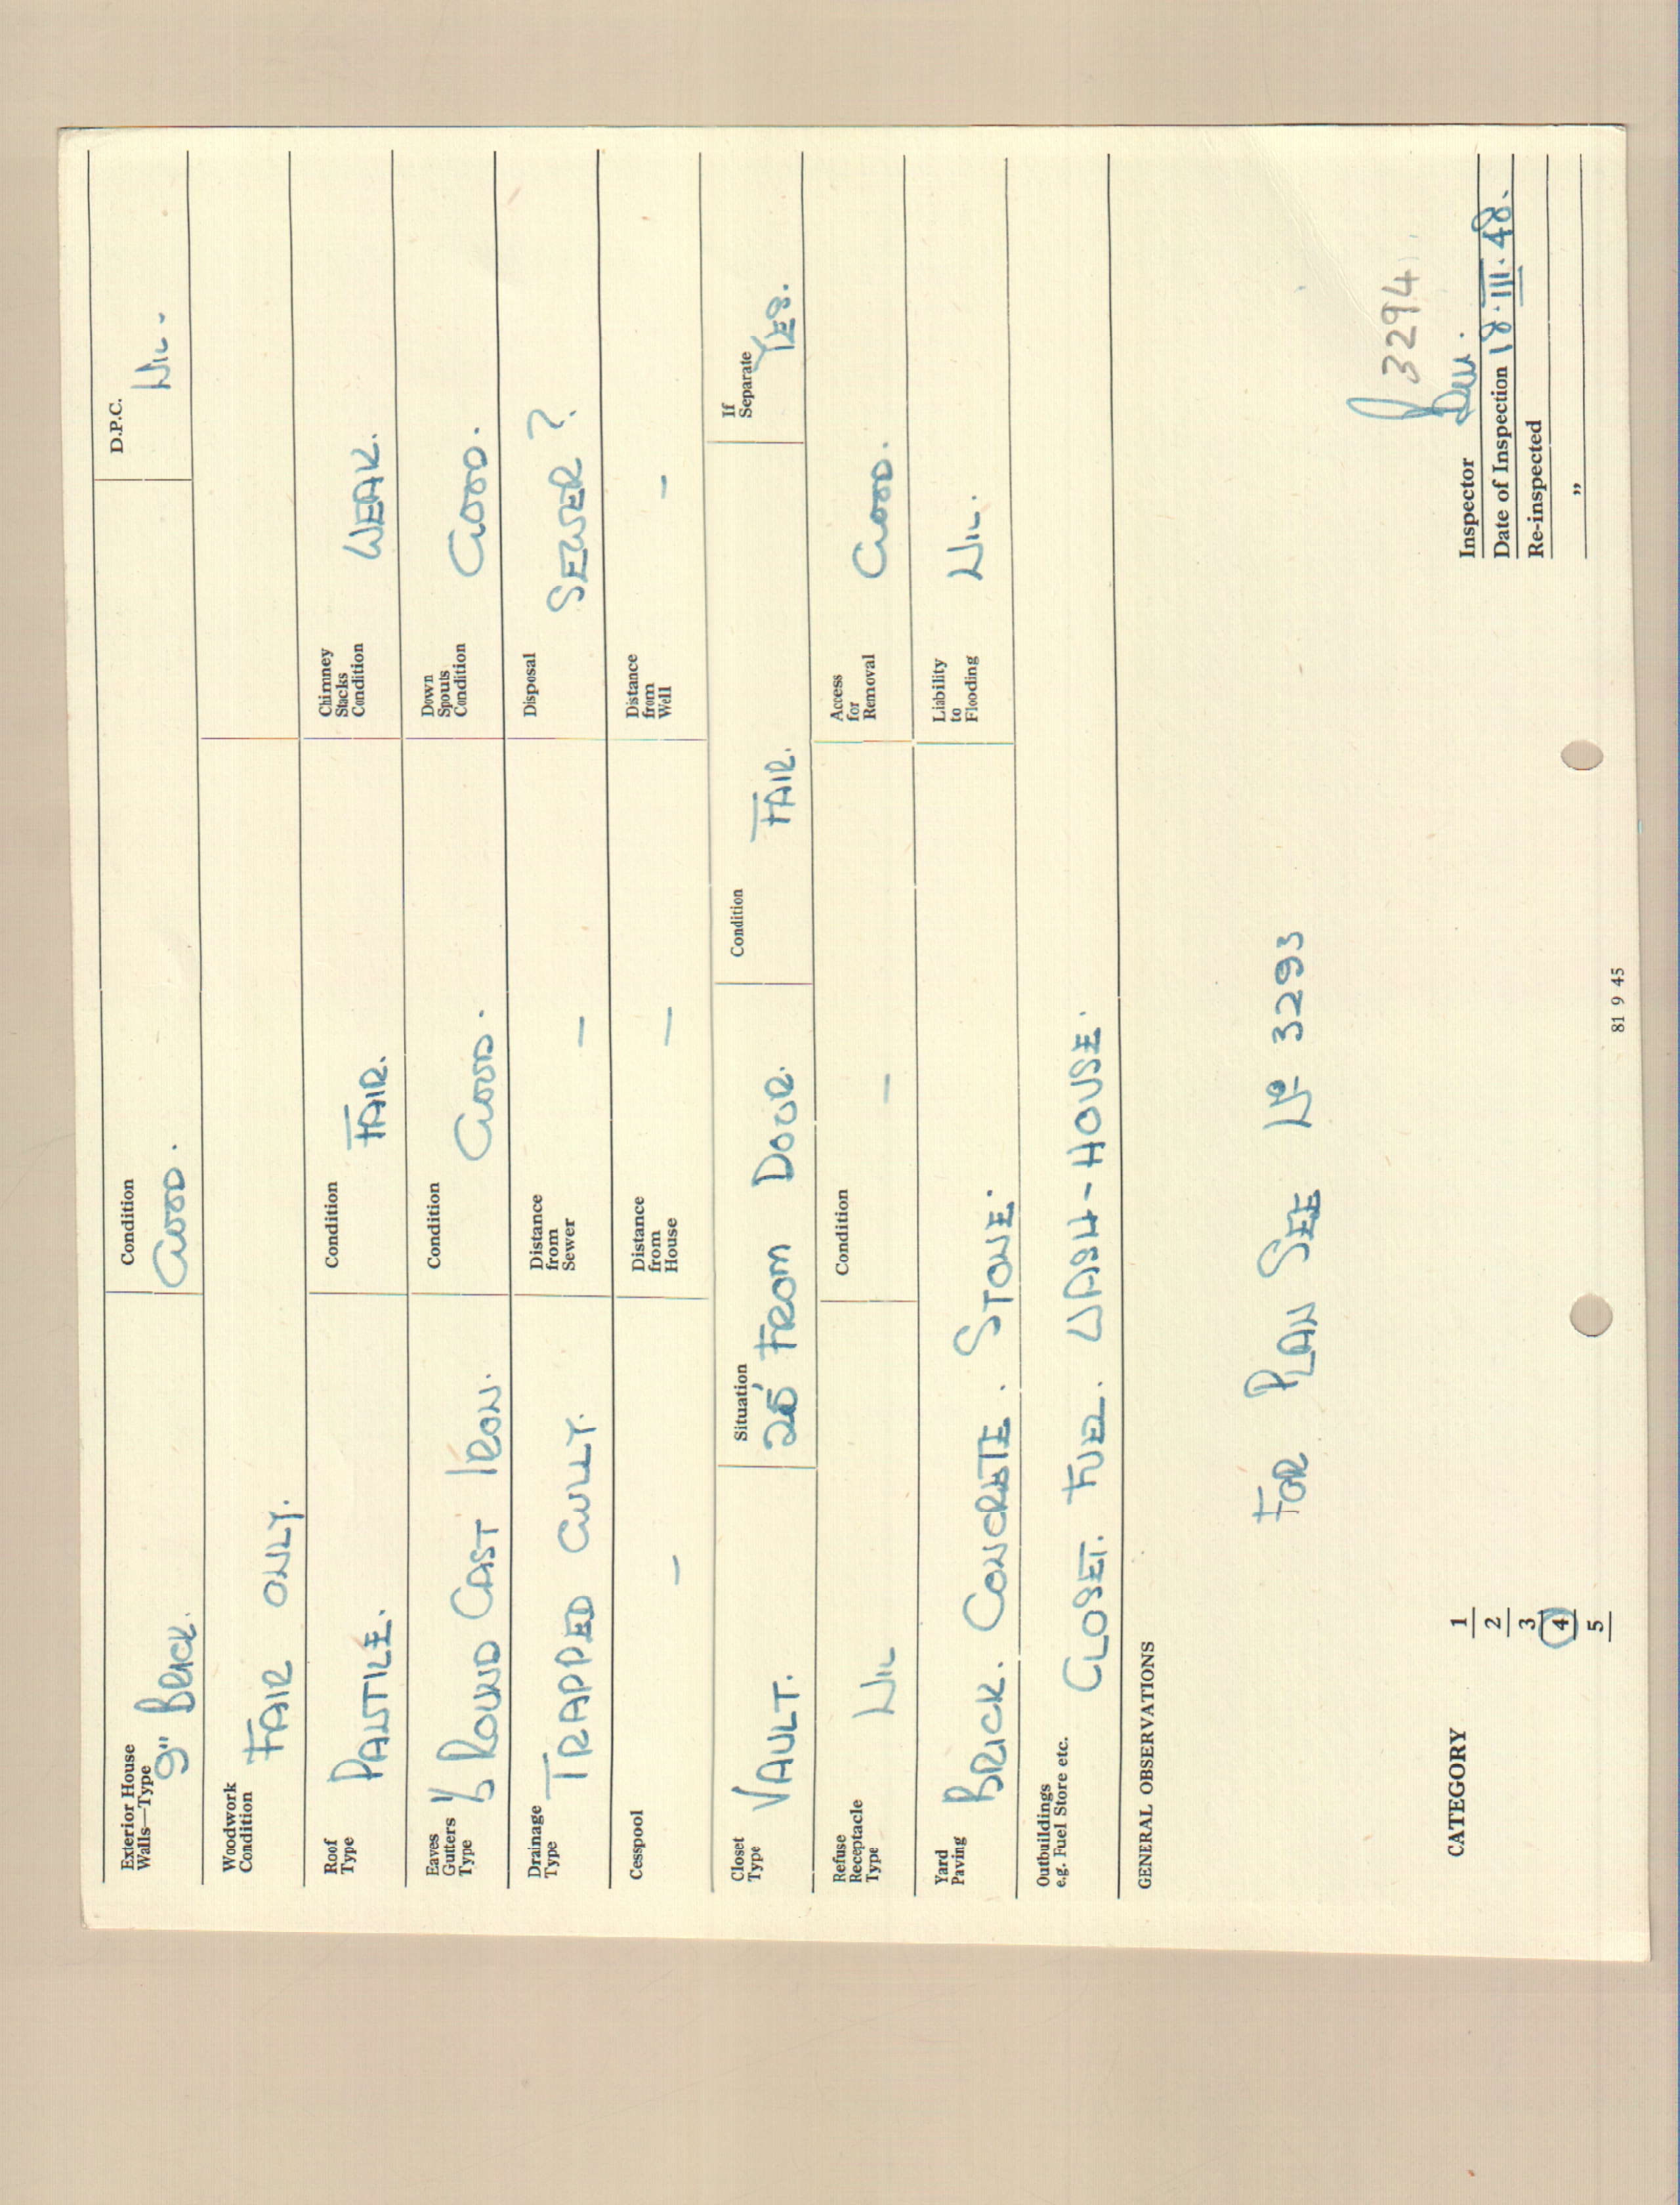 Exterior House Walls—Type 9" BRICK. Condition GOOD. D.P.C. NIL.
Woodwork Condition FAIR ONLY.
Roof Type PANTILE. Condition FAIR. Chimney Stacks Condition WEAK.
Eaves Gutters Type ½ ROUND CAST IRON. Condition GOOD. Down Spouts Condition GOOD.
Drainage Type TRAPPED GULLY. Distance from Sewer — Disposal SEWER ?
Cesspool — Distance from House — Distance from Well —
Closet Type VAULT. Situation 25' FROM DOOR. Condition FAIR. If Separate YES.
Refuse Receptacle Type NIL Condition — Access for Removal GOOD.
Yard Paving BRICK. CONCRETE. STONE. Liability to Flooding NIL.
Outbuildings e.g. Fuel Store etc. CLOSET. FUEL. WASH-HOUSE.
GENERAL OBSERVATIONS
FOR PLAN SEE Nº 3293
3294
CATEGORY 1
2
3
4
5
Inspector
Date of Inspection 18.III.48.
Re-inspected
"
81 9 45